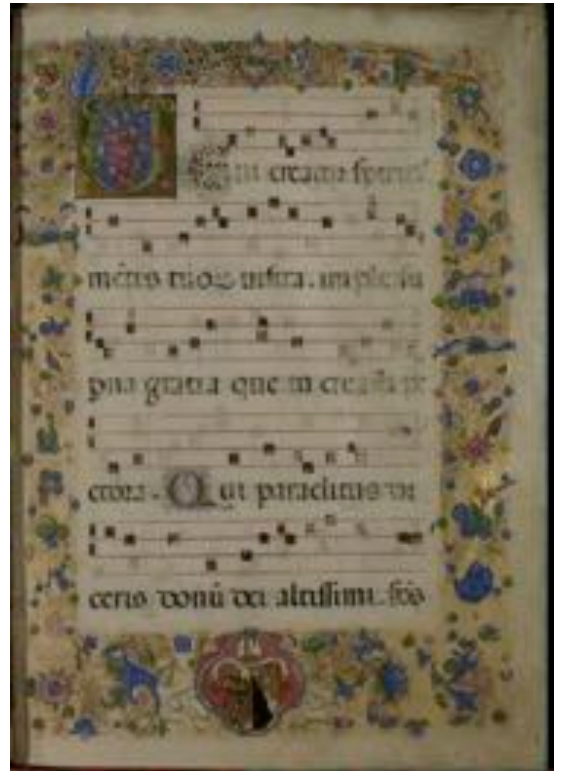 Veni creator spiritus
mētes tuoꝝ uisita. imple su
pna gratia que tu creasti pe
ctora. Qui paraclitus di
ceris donū dei altissimi. fōs